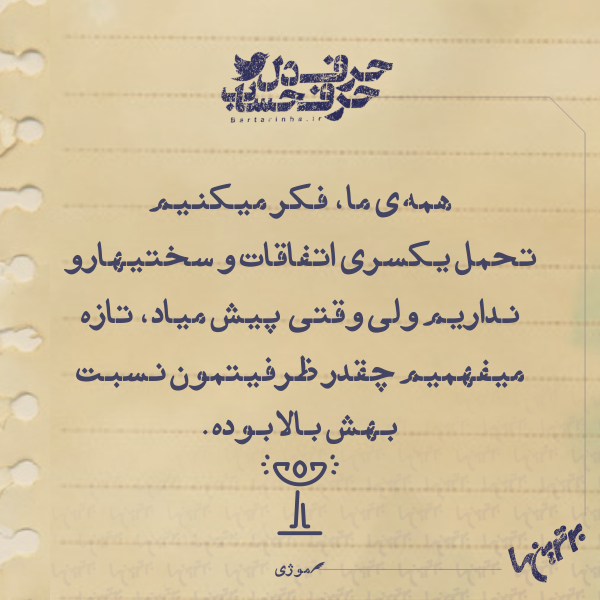 حرف دل
حرف حساب
Bartarinha.ir
همه‌ی ما، فکر میکنیم
تحمل یکسری اتفاقات و سختیهارو
نداریم ولی وقتی پیش میاد، تازه
میفهمیم چقدر ظرفیتمون نسبت
بهش بالا بوده.
موژی
برترین‌ها